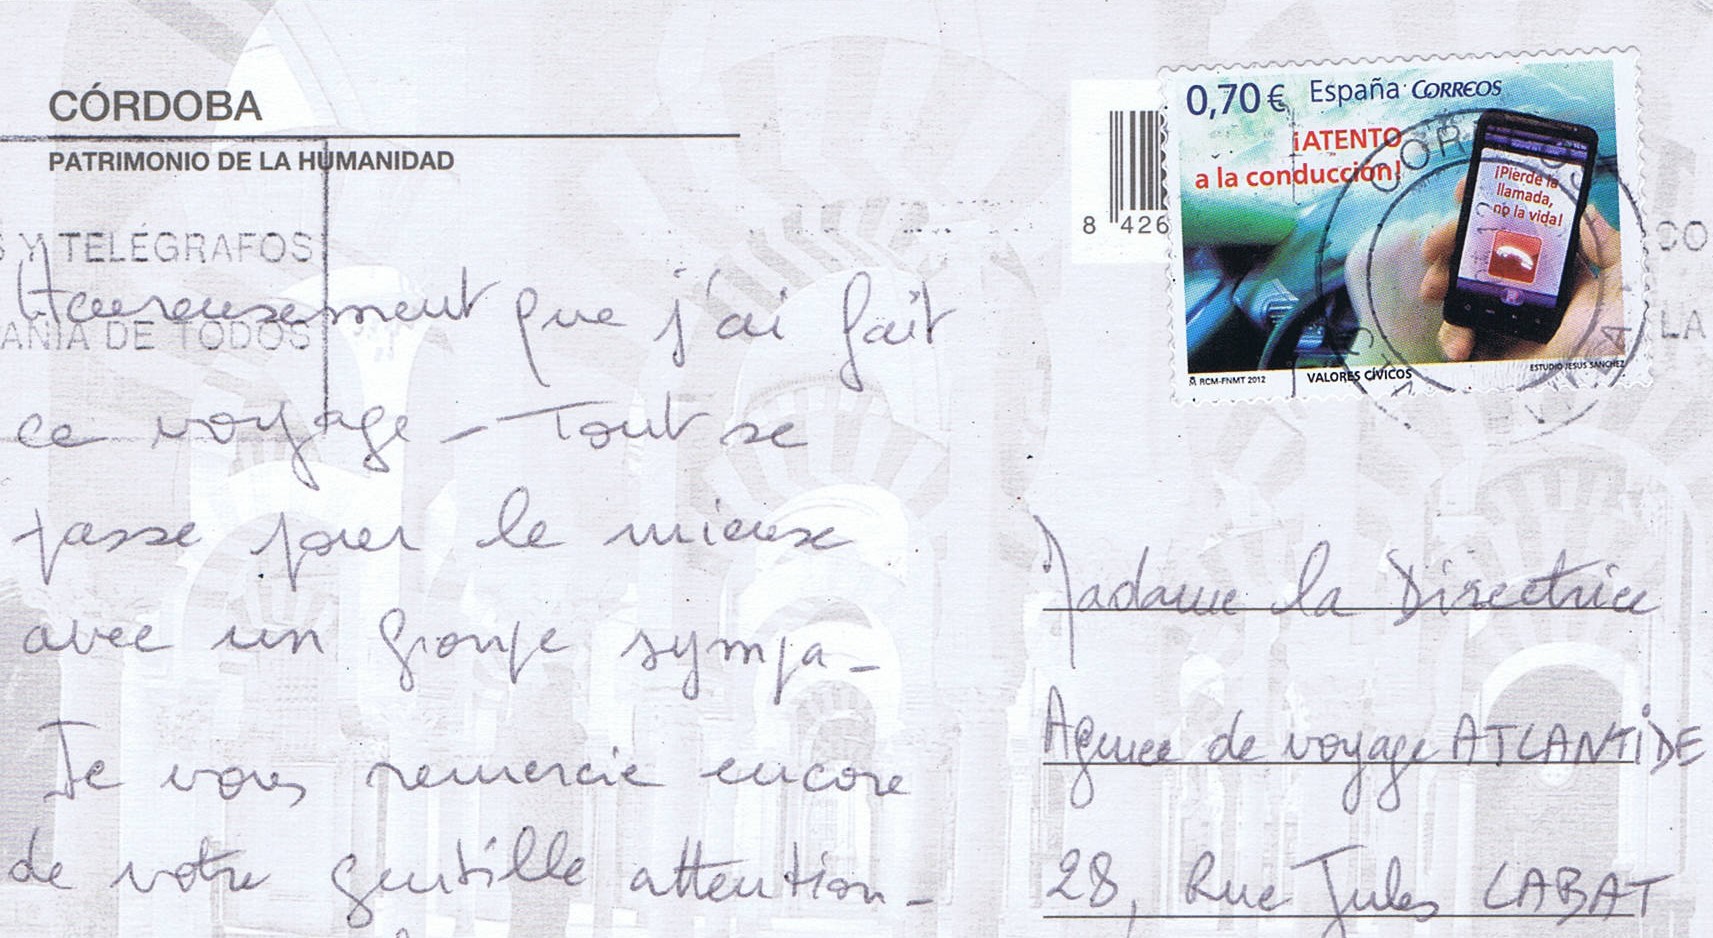 CÓRDOBA
PATRIMONIO DE LA HUMANIDAD
S Y TELÉGRAFOS
ANÍA DE TODOS
Heureusement que j'ai fait
ce voyage - Tout se
passe pour le mieux
avec un groupe sympa -
Je vous remercie encore
de votre gentille attention -
8 426
0,70 € España CORREOS
¡ATENTO
a la conducción!
¡Pierde la
llamada,
no la vida!
RCM-FNMT 2012
VALORES CÍVICOS
ESTUDIO JESUS SANCHEZ
CORREOS
CO
LA
Madame la Directrice
Agence de voyage ATLANTIDE
28, Rue Jules LABAT